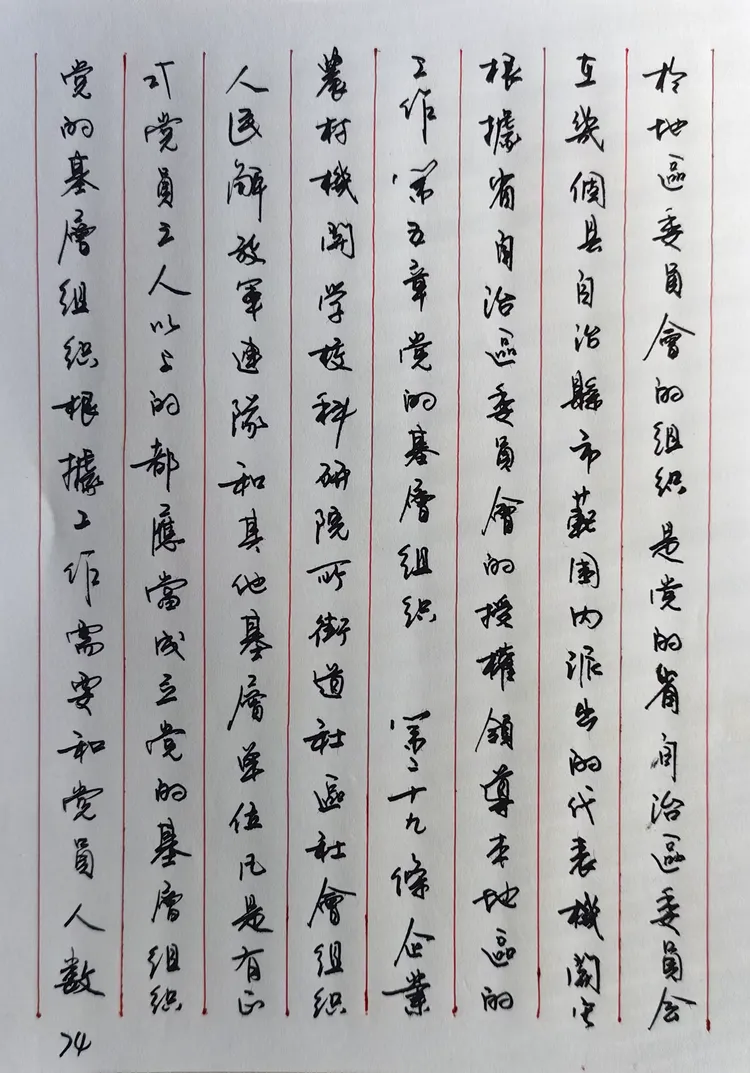 於地區委員會的組织是党的省自治區委員会
在幾個县自治縣市範圍内派出的代表機關它
根據省自治區委員會的授權領導本地區的
工作 第五章党的基層组织 第二十九條企業
農村機関学校科研院所街道社區社會组织
人民解放軍連隊和其他基層单位凡是有正
式党員三人以上的都應當成立党的基層组织
党的基層组织根據工作需要和党員人数
74